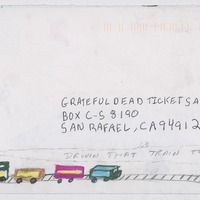 GRATEFUL DEAD TICKET SA
BOX C-S 8190
SAN RAFAEL, CA 94912
DRIVIN THAT TRAIN